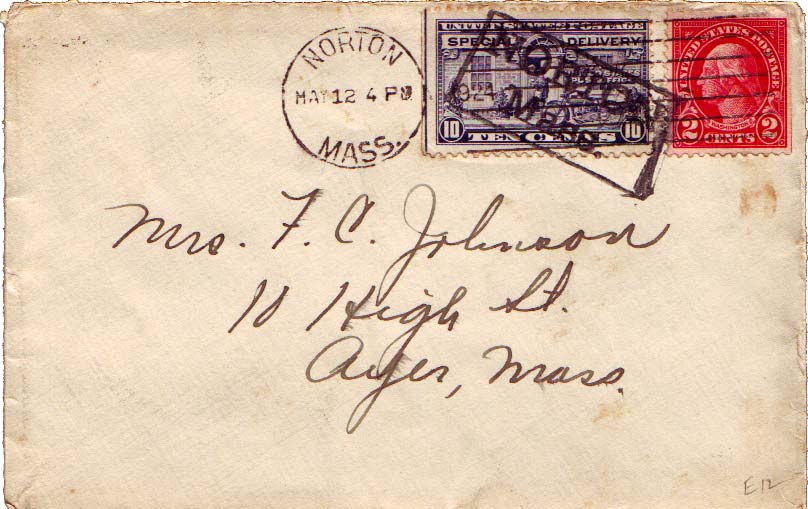 NORTON
MAY 12 4 PM
1924
MASS.
UNITED STATES POSTAGE
SPECIAL DELIVERY
10 TEN CENTS 10
NORTON
Mass.
UNITED STATES POSTAGE
WASHINGTON
2 CENTS 2
Mrs. F. C. Johnson
10 High St.
Ayer, Mass.
E12